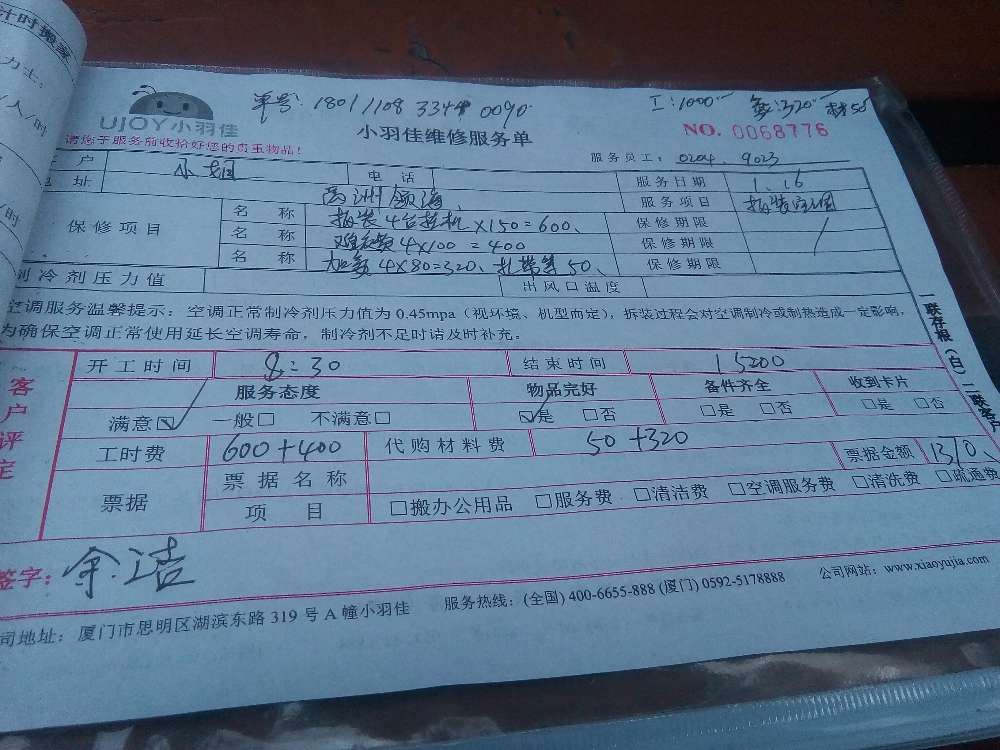 计时搬家
力士:
/人/时
/时
单号: 1801 1108 3344 0090
工:1000 氟:320 材50
UJOY小羽佳
小羽佳维修服务单
NO. 0068776
请您于服务前收拾好您的贵重物品!
服务员工: 0204、9023
客户 电话 服务日期 1、16
地址 服务项目 拆装空调
保修项目 名称 拆装4台挂机×150=600、 保修期限
名称 4×100=400 保修期限
名称 加氟4×80=320、扎带等50、 保修期限
制冷剂压力值 出风口温度
空调服务温馨提示:空调正常制冷剂压力值为0.45mpa(视环境、机型而定),拆装过程会对空调制冷或制热造成一定影响,
为确保空调正常使用延长空调寿命,制冷剂不足时请及时补充。
一联存根(白)二联客户
客户评定
开工时间 8:30 结束时间 15:00
服务态度 物品完好 备件齐全 收到卡片
满意☑ 一般□ 不满意□ ☑是 □否 □是 □否 □是 □否
工时费 600+400 代购材料费 50+320
票据 票据名称 票据金额 1370、
项目 □搬办公用品 □服务费 □清洁费 □空调服务费 □清洗费 □疏通费
签字: 余洁
司地址: 厦门市思明区湖滨东路319号A幢小羽佳 服务热线: (全国) 400-6655-888 (厦门) 0592-5178888 公司网站: www.xiaoyujia.com